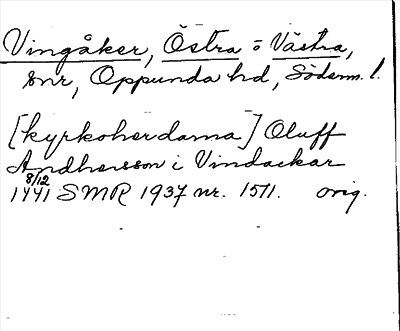 Vingåker, Östra o Västra,
snr, Oppunda hd, Söderm. l.
[kyrkoherdarna] Oluff
Andhersson i Vindackar
8/12
1441 SMR 1937 nr. 1511. orig.